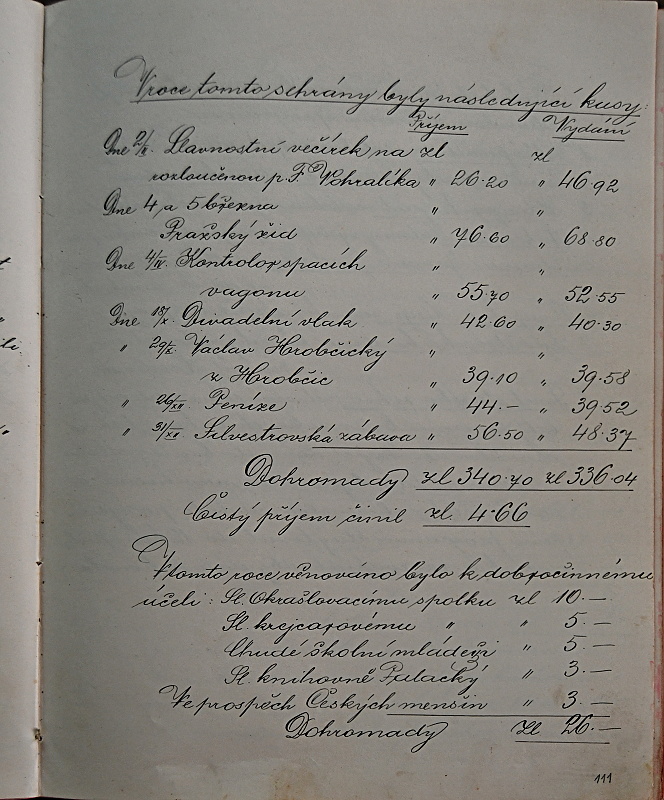 V roce tomto sehrány byly následující kusy:
Příjem Vydání
Dne 2/II. Slavnostní večírek na zl zl
rozloučenou p. F. Vohralíka " 26·20 " 46·92
Dne 4 a 5 března " "
Pražský žid " 76·60 " 68·80
Dne 4/IV. Kontrolor spacích " "
vagonu " 55·70 " 52·55
Dne 18/X. Divadelní vlak " 42·60 " 40·30
" 29/X. Václav Hrobčický " "
z Hrobčic " 39·10 " 39·58
" 26/XII Peníze " 44·— " 39·52
" 31/XII Silvestrovská zábava " 56·50 " 48·37
Dohromady zl 340·70 zl 336·04
Čistý příjem činil zl. 4·66
V tomto roce věnováno bylo k dobročinnému
účeli: Sl. Okrašlovacímu spolku zl 10.—
Sl. krejcarovému " " 5.—
Chudé školní mládeži " 5.—
Sl. knihovně Palacký " 3.—
Ve prospěch Českých menšin " 3.—
Dohromady zl 26.—
111